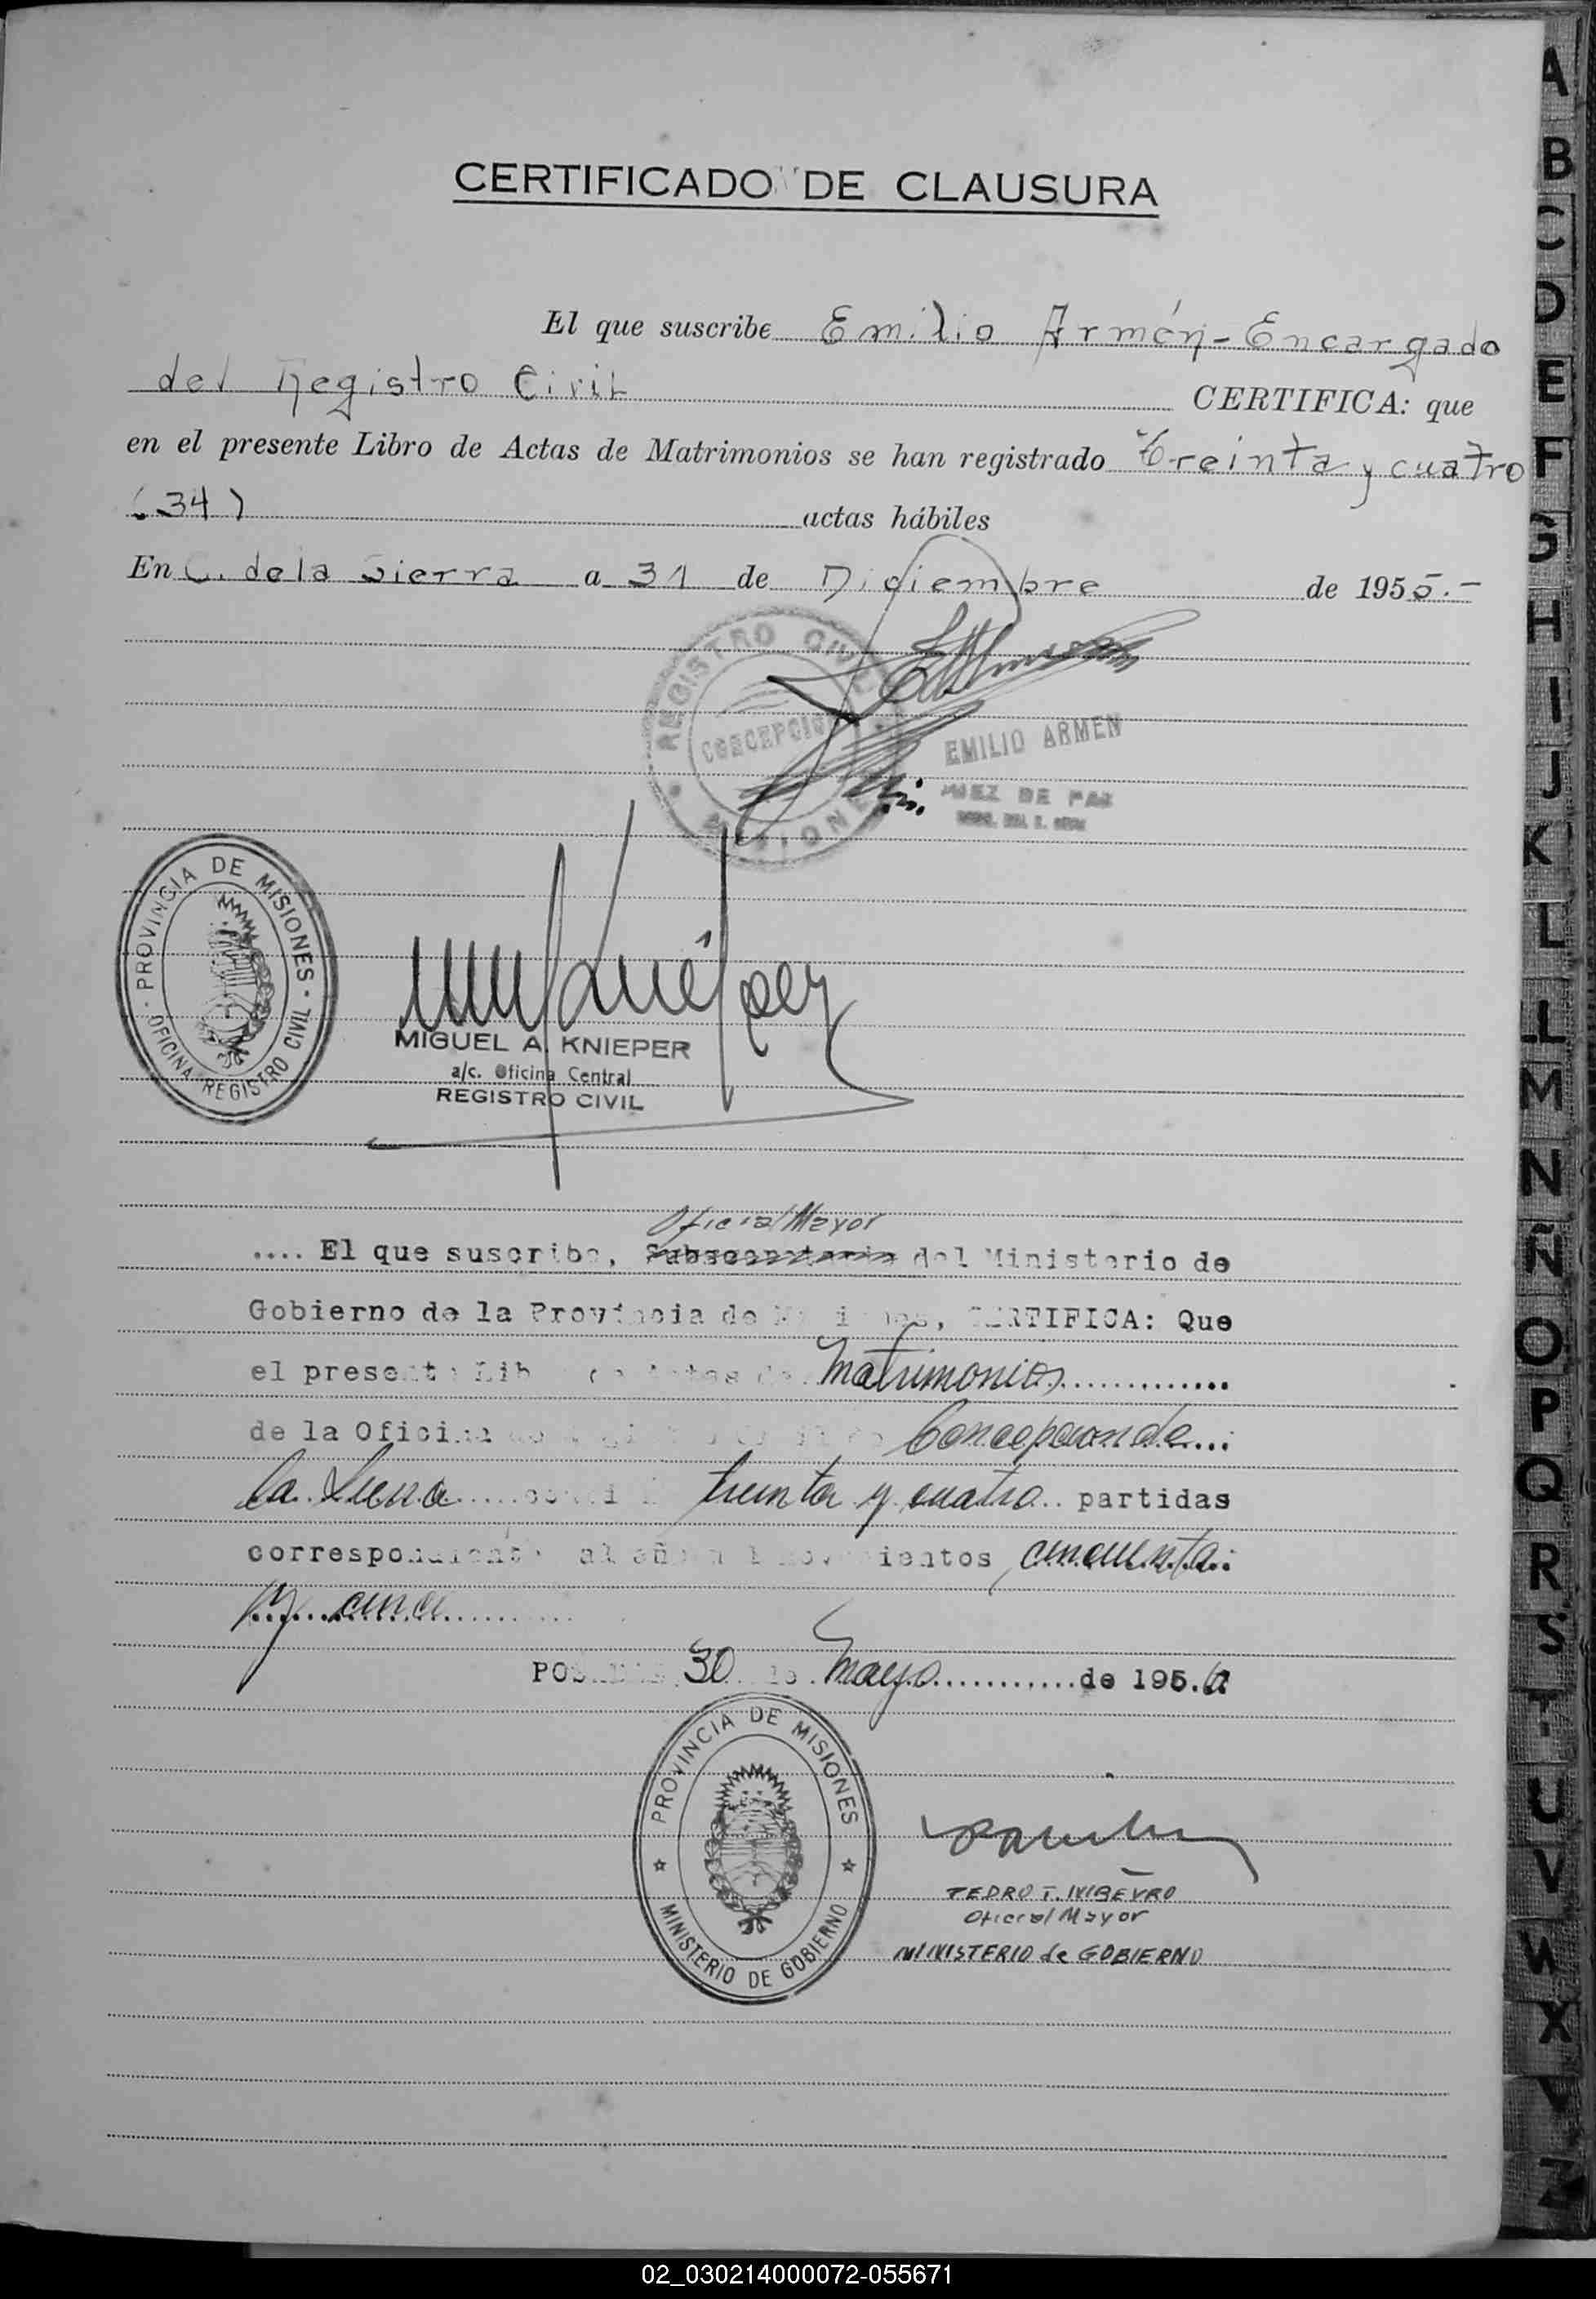 CERTIFICADO DE CLAUSURA
El que suscribe Emilio Armén - Encargado
del Registro Civil CERTIFICA: que
en el presente Libro de Actas de Matrimonios se han registrado Treinta y cuatro
(34) actas hábiles
En C. de la Sierra a 31 de Diciembre de 1955.-
REGISTRO CIVIL
CONCEPCION
MISIONES
EMILIO ARMEN
JUEZ DE PAZ
PROVINCIA DE MISIONES
OFICINA REGISTRO CIVIL
MIGUEL A. KNIEPER
a/c. Oficina Central
REGISTRO CIVIL
Oficial Mayor
.... El que suscribe, Subsecretario del Ministerio de
Gobierno de la Provincia de Misiones, CERTIFICA: Que
el presente Libro de Actas de Matrimonios
de la Oficina Concepcion de
la Sierra treinta y cuatro partidas
correspondiente al año mil novecientos cincuenta
y cinco
POSADAS 30 de Mayo de 195.6
PROVINCIA DE MISIONES
MINISTERIO DE GOBIERNO
Oficial Mayor
MINISTERIO de GOBIERNO
A
B
C
D
E
F
G
H
I
J
K
L
LL
M
N
Ñ
O
P
Q
R
S
T
U
V
W
X
Y
Z
02_030214000072-055671